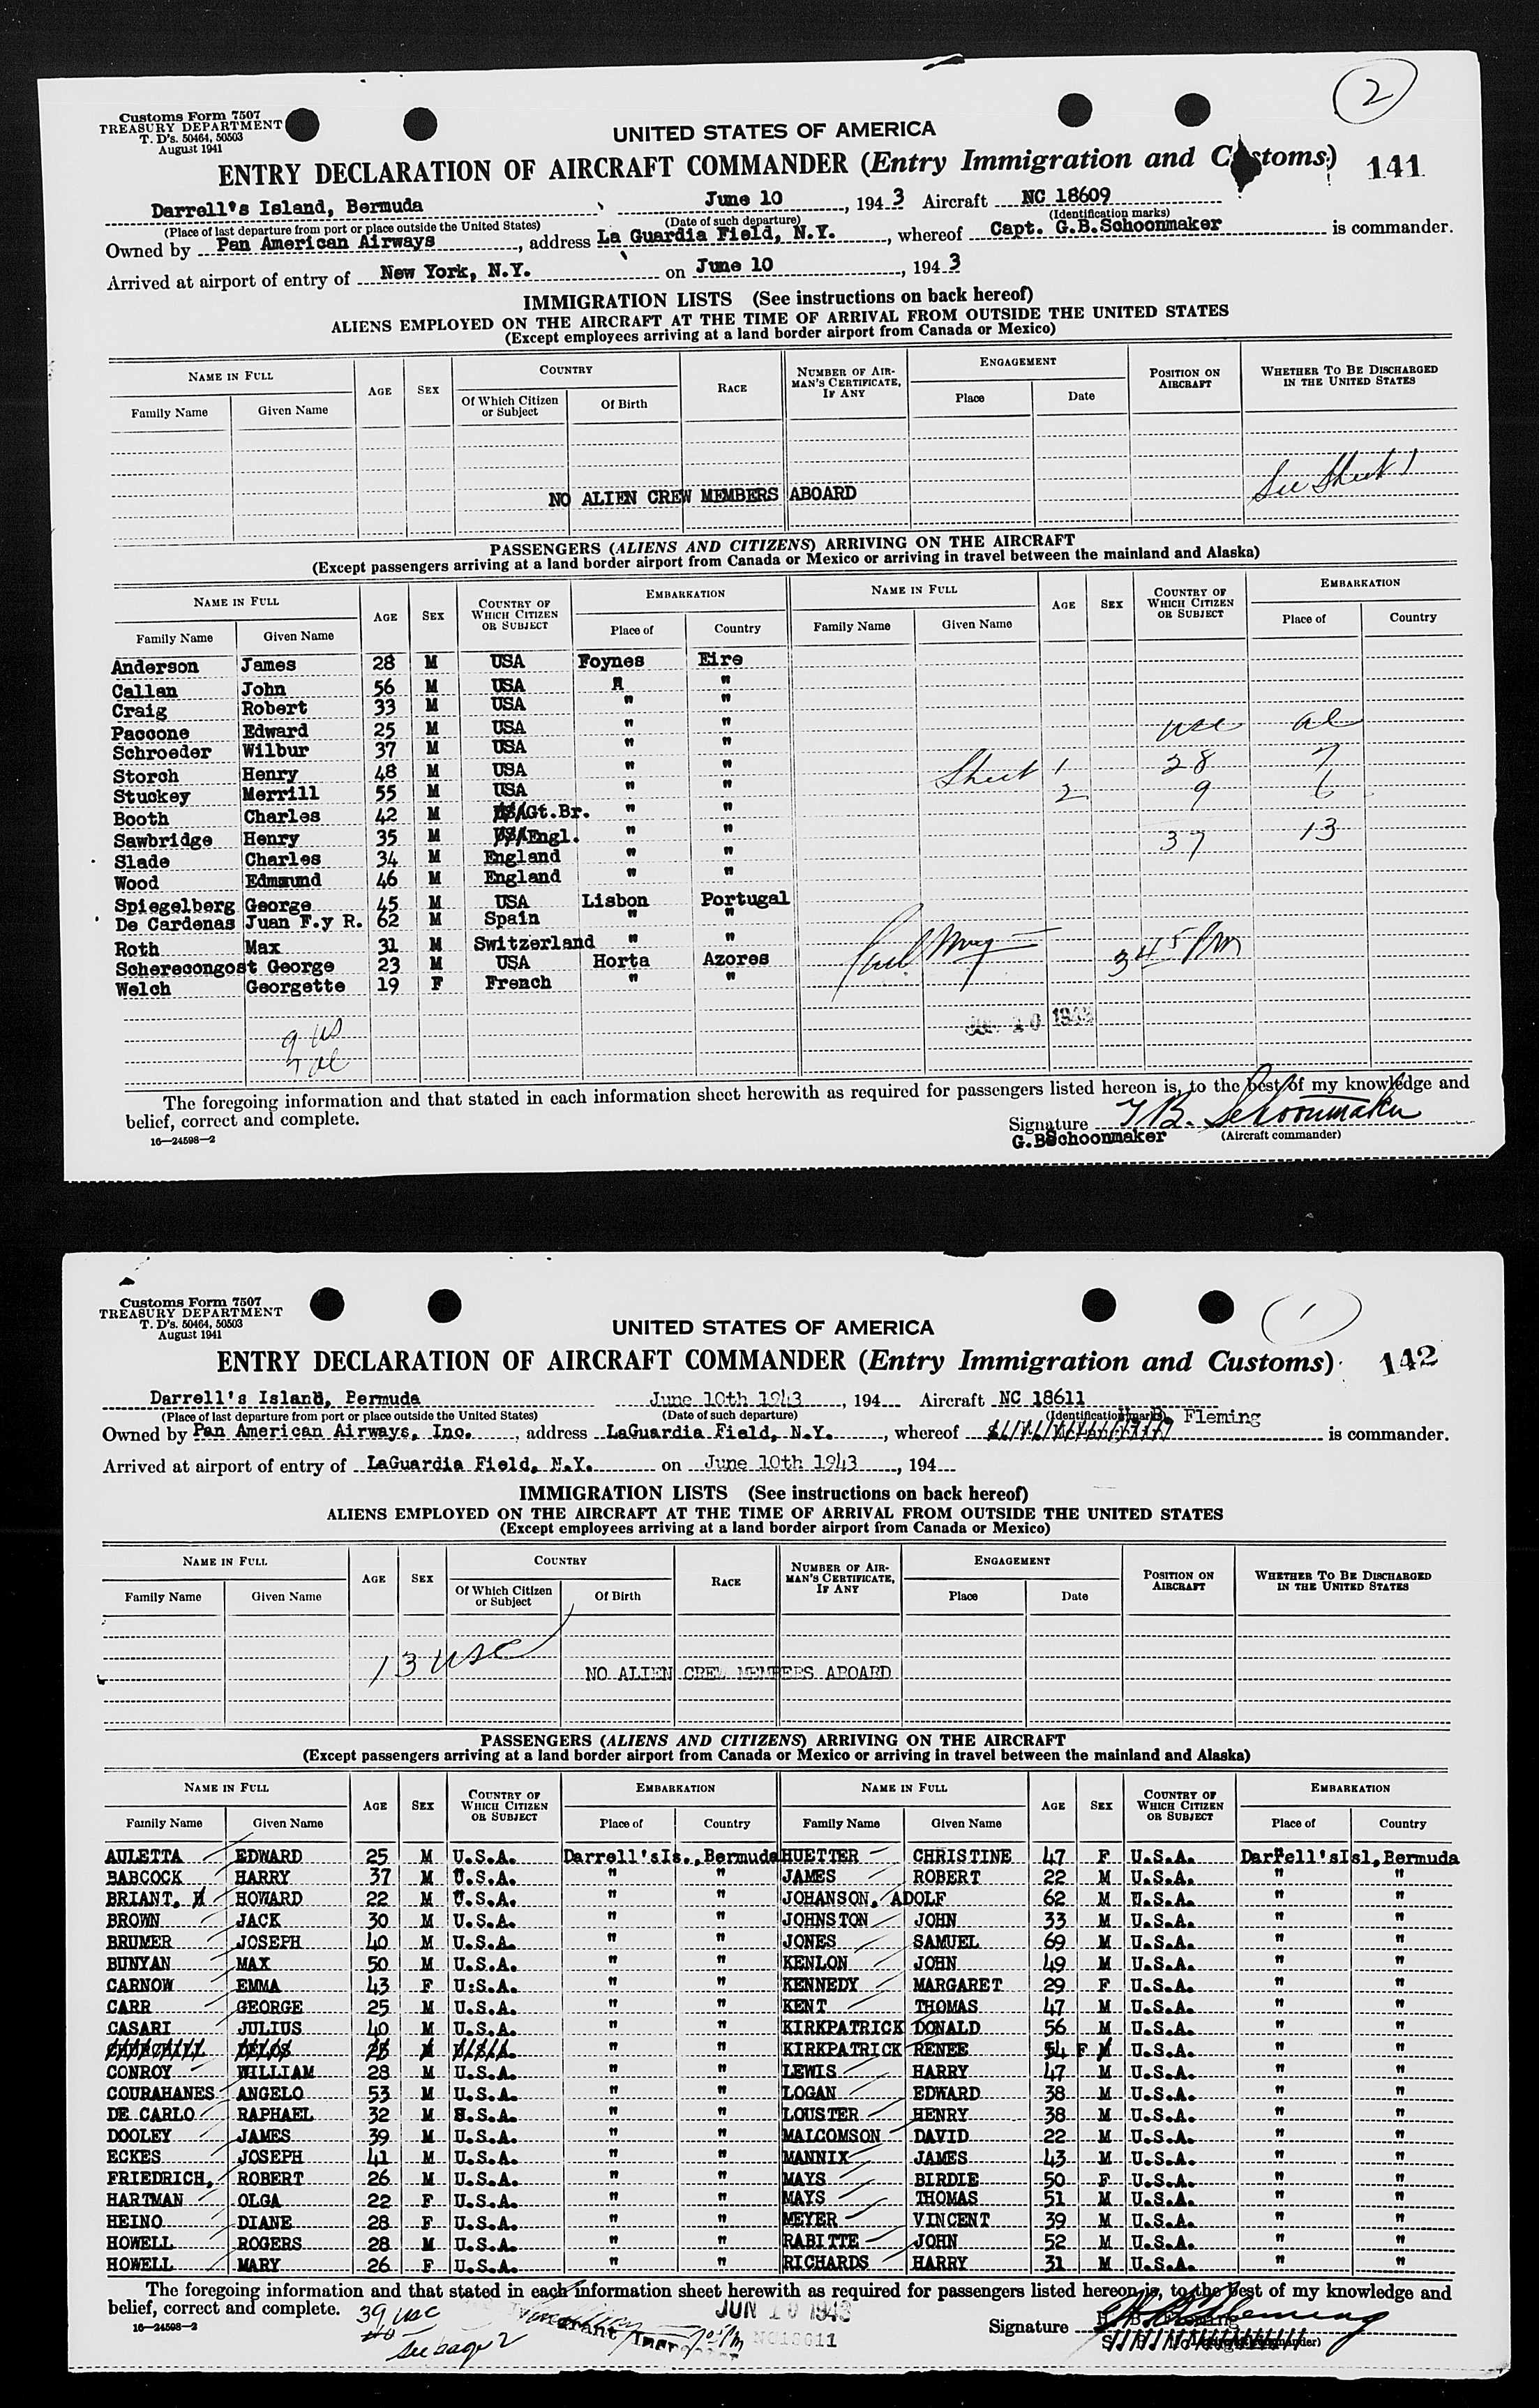 2
Customs Form 7507
TREASURY DEPARTMENT
T. D's. 50464, 50503
August 1941
UNITED STATES OF AMERICA
ENTRY DECLARATION OF AIRCRAFT COMMANDER (Entry Immigration and Customs) 141
Darrell's Island, Bermuda June 10, 1943 Aircraft NC 18609
(Place of last departure from port or place outside the United States) (Date of such departure) (Identification marks)
Owned by Pan American Airways, address La Guardia Field, N.Y., whereof Capt. G.B.Schoonmaker is commander.
Arrived at airport of entry of New York, N.Y. on June 10, 1943
IMMIGRATION LISTS (See instructions on back hereof)
ALIENS EMPLOYED ON THE AIRCRAFT AT THE TIME OF ARRIVAL FROM OUTSIDE THE UNITED STATES
(Except employees arriving at a land border airport from Canada or Mexico)
NAME IN FULL AGE SEX COUNTRY RACE NUMBER OF AIRMAN'S CERTIFICATE, IF ANY ENGAGEMENT POSITION ON AIRCRAFT WHETHER TO BE DISCHARGED IN THE UNITED STATES
Family Name Given Name Of Which Citizen or Subject Of Birth Place Date
See Sheet 1
NO ALIEN CREW MEMBERS ABOARD
PASSENGERS (ALIENS AND CITIZENS) ARRIVING ON THE AIRCRAFT
(Except passengers arriving at a land border airport from Canada or Mexico or arriving in travel between the mainland and Alaska)
NAME IN FULL AGE SEX COUNTRY OF WHICH CITIZEN OR SUBJECT EMBARKATION NAME IN FULL AGE SEX COUNTRY OF WHICH CITIZEN OR SUBJECT EMBARKATION
Family Name Given Name Place of Country Family Name Given Name Place of Country
Anderson James 28 M USA Foynes Eire
Callan John 56 M USA " "
Craig Robert 33 M USA " "
Paccone Edward 25 M USA " " usc al
Schroeder Wilbur 37 M USA " "
Storch Henry 48 M USA " " Sheet 1 28 7
Stuckey Merrill 55 M USA " " 2 9 6
Booth Charles 42 M Gt.Br. " "
Sawbridge Henry 35 M Engl. " " 37 13
Slade Charles 34 M England " "
Wood Edmund 46 M England " "
Spiegelberg George 45 M USA Lisbon Portugal
De Cardenas Juan F.y R. 62 M Spain " "
Roth Max 31 M Switzerland " "
Scherecongost George 23 M USA Horta Azores 345 PM
Welch Georgette 19 F French " "
JUN 10 1943
9 us
7 al
The foregoing information and that stated in each information sheet herewith as required for passengers listed hereon is, to the best of my knowledge and
belief, correct and complete.
Signature G B. Schoonmaker
G.BSchoonmaker (Aircraft commander)
16—24598—2
1
Customs Form 7507
TREASURY DEPARTMENT
T. D's. 50464, 50503
August 1941
UNITED STATES OF AMERICA
ENTRY DECLARATION OF AIRCRAFT COMMANDER (Entry Immigration and Customs) 142
Darrell's Island, Bermuda June 10th 1943, 194 Aircraft NC 18611
(Place of last departure from port or place outside the United States) (Date of such departure) (Identification marks)
Owned by Pan American Airways, Inc., address LaGuardia Field, N.Y., whereof B. Fleming is commander.
Arrived at airport of entry of LaGuardia Field, N.Y. on June 10th 1943, 194
IMMIGRATION LISTS (See instructions on back hereof)
ALIENS EMPLOYED ON THE AIRCRAFT AT THE TIME OF ARRIVAL FROM OUTSIDE THE UNITED STATES
(Except employees arriving at a land border airport from Canada or Mexico)
NAME IN FULL AGE SEX COUNTRY RACE NUMBER OF AIRMAN'S CERTIFICATE, IF ANY ENGAGEMENT POSITION ON AIRCRAFT WHETHER TO BE DISCHARGED IN THE UNITED STATES
Family Name Given Name Of Which Citizen or Subject Of Birth Place Date
13 usc
NO ALIEN CREW MEMBERS ABOARD
PASSENGERS (ALIENS AND CITIZENS) ARRIVING ON THE AIRCRAFT
(Except passengers arriving at a land border airport from Canada or Mexico or arriving in travel between the mainland and Alaska)
NAME IN FULL AGE SEX COUNTRY OF WHICH CITIZEN OR SUBJECT EMBARKATION NAME IN FULL AGE SEX COUNTRY OF WHICH CITIZEN OR SUBJECT EMBARKATION
Family Name Given Name Place of Country Family Name Given Name Place of Country
AULETTA EDWARD 25 M U.S.A. Darrell'sIs.,Bermuda HUETTER CHRISTINE 47 F U.S.A. Darrell'sIsl,Bermuda
BABCOCK HARRY 37 M U.S.A. " " JAMES ROBERT 22 M U.S.A. " "
BRIANT, HOWARD 22 M U.S.A. " " JOHANSON, ADOLF 62 M U.S.A. " "
BROWN JACK 30 M U.S.A. " " JOHNSTON JOHN 33 M U.S.A. " "
BRUMER JOSEPH 40 M U.S.A. " " JONES SAMUEL 69 M U.S.A. " "
BUNYAN MAX 50 M U.S.A. " " KENLON JOHN 49 M U.S.A. " "
CARNOW EMMA 43 F U:S.A. " " KENNEDY MARGARET 29 F U.S.A. " "
CARR GEORGE 25 M U.S.A. " " KENT THOMAS 47 M U.S.A. " "
CASARI JULIUS 40 M U.S.A. " " KIRKPATRICK DONALD 56 M U.S.A. " "
CHURCHILL DELOS 25 M U.S.A. " " KIRKPATRICK RENEE 54 F U.S.A. " "
CONROY WILLIAM 28 M U.S.A. " " LEWIS HARRY 47 M U.S.A. " "
COURAHANES ANGELO 53 M U.S.A. " " LOGAN EDWARD 38 M U.S.A. " "
DE CARLO RAPHAEL 32 M U.S.A. " " LOUSTER HENRY 38 M U.S.A. " "
DOOLEY JAMES 39 M U.S.A. " " MALCOMSON DAVID 22 M U.S.A. " "
ECKES JOSEPH 41 M U.S.A. " " MANNIX JAMES 43 M U.S.A. " "
FRIEDRICH, ROBERT 26 M U.S.A. " " MAYS BIRDIE 50 F U.S.A. " "
HARTMAN OLGA 22 F U.S.A. " " MAYS THOMAS 51 M U.S.A. " "
HEINO DIANE 28 F U.S.A. " " MEYER VINCENT 39 M U.S.A. " "
HOWELL ROGERS 28 M U.S.A. " " RABITTE JOHN 52 M U.S.A. " "
HOWELL MARY 26 F U.S.A. " " RICHARDS HARRY 31 M U.S.A. " "
The foregoing information and that stated in each information sheet herewith as required for passengers listed hereon is, to the best of my knowledge and
belief, correct and complete. 39 usc JUN 10 1943
Immigrant Inspector NC18611
Signature Fleming
16—24598—2 see page 2